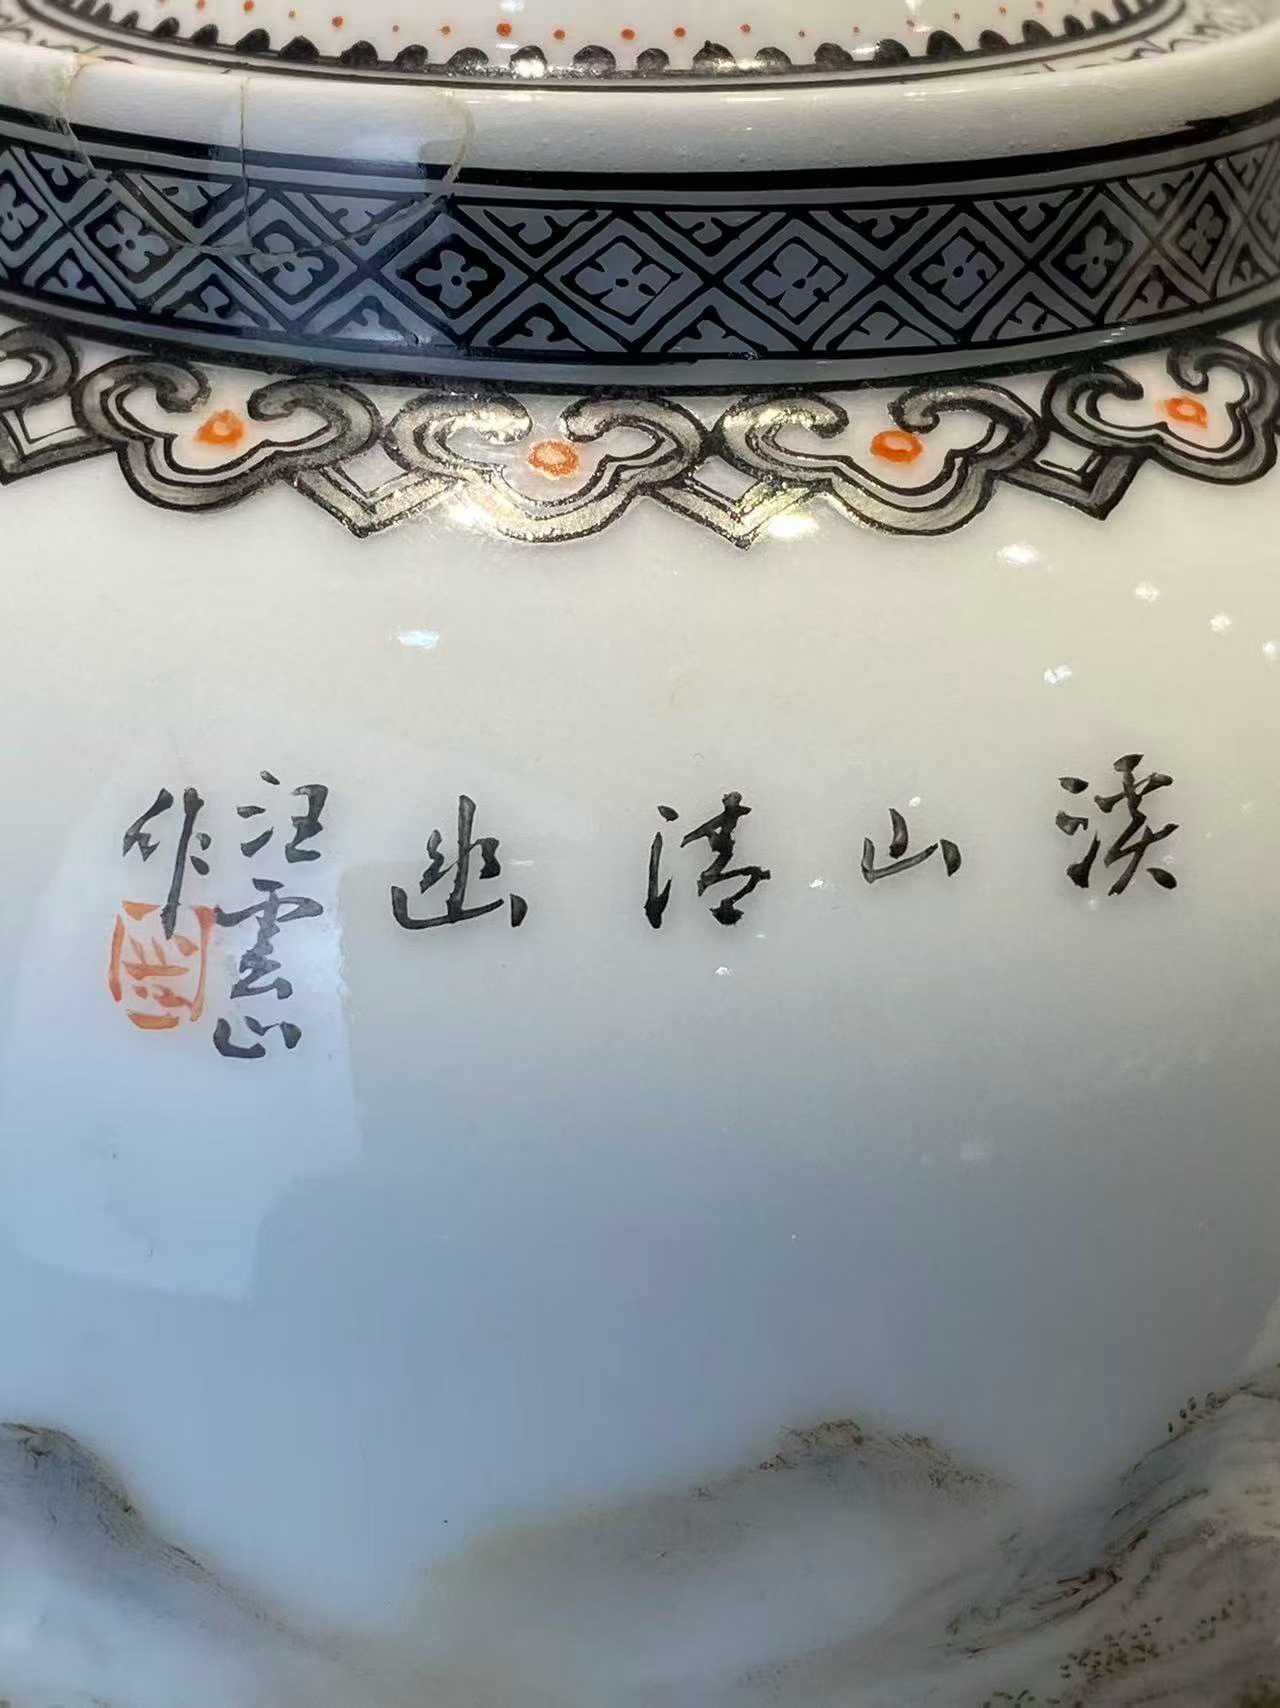 溪山清幽
汪雲山
作